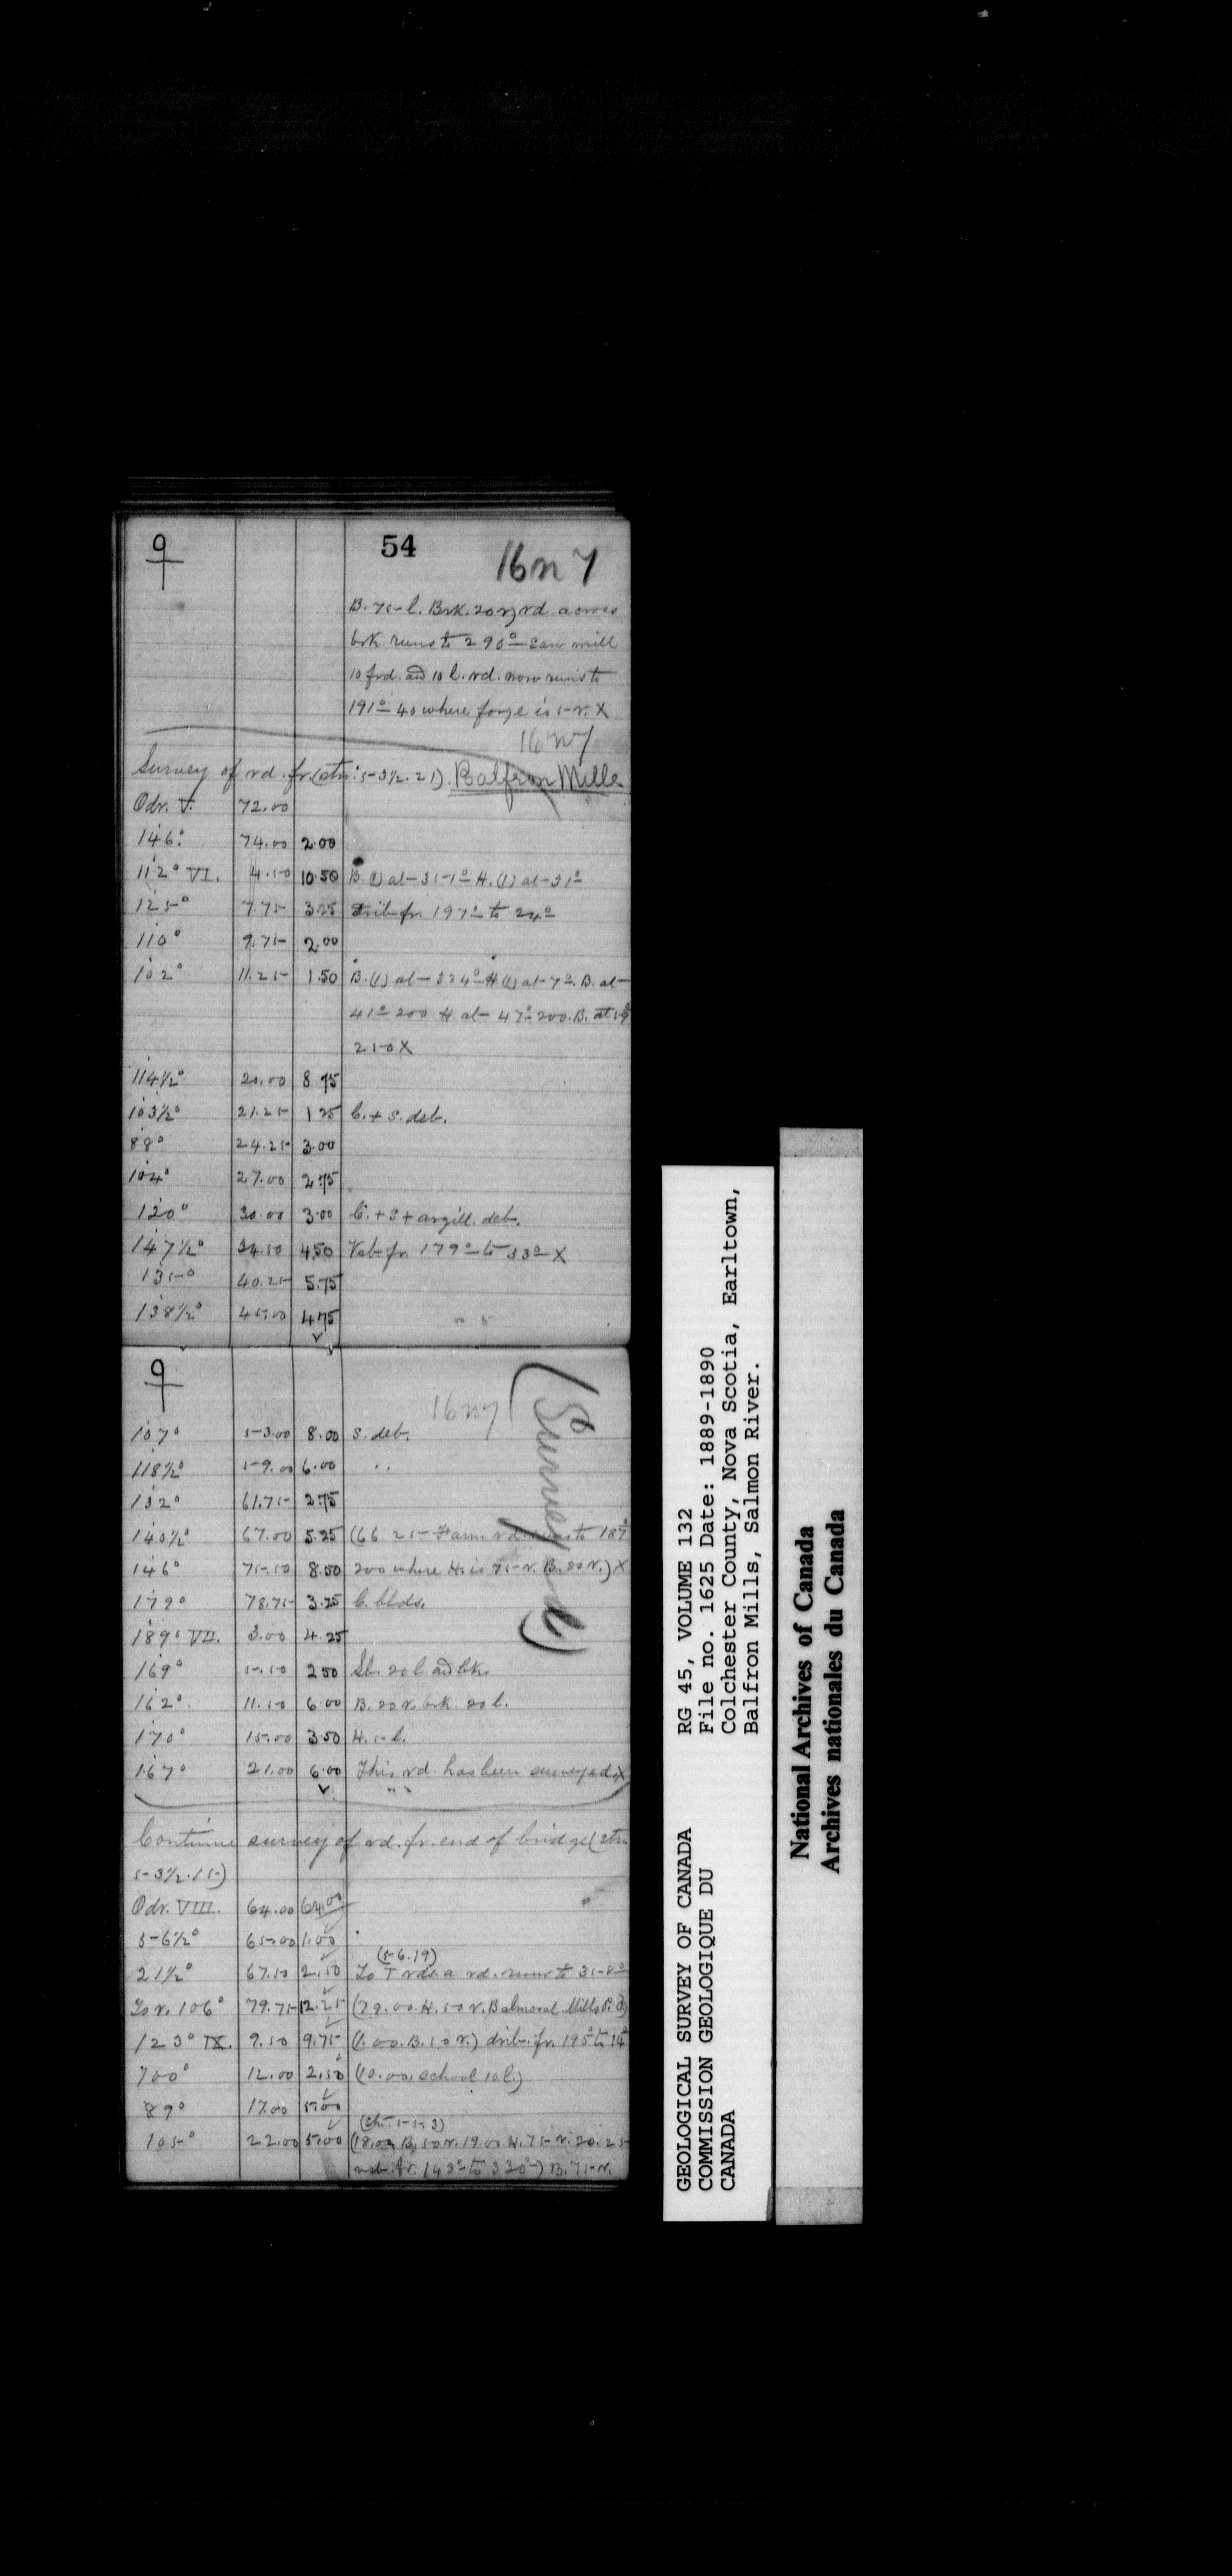 54
16 n 7
B. 75 l. Brk. 20 r, rd. across
brk. runs to 290° Saw mill
10 f rd. and 10 l. rd. now runs to
191° 40 where forge is 5 r. X
16 n 7
Survey of rd. fr. (stn: 53½. 21). Balfron Mills
Odr. V. 72.00
146° 74.00 2.00
112° VI. 4.50 10.50 B. (1) at 351° H. (1) at 31°
125° 7.75 3.25 drib. fr. 197° to 24°
110° 9.75 2.00
102° 11.25 1.50 B. (1) at 334° H. (1) at 7°. B. at
41° 200 H. at 47° 200. B. at 59°
250 X
114½° 20.00 8.75
103½° 21.25 1.25 C. + S. deb.
88° 24.25 3.00
104° 27.00 2.75
120° 30.00 3.00 C. + S + argill. deb.
147½° 34.50 4.50 Vsb. fr. 179° to 33° X
135° 40.25 5.75
138½° 45.00 4.75
16 n 7
(Surveyed)
107° 53.00 8.00 S. deb.
118½° 59.00 6.00 "
132° 61.75 2.75
140½° 67.00 5.25 (66.25 Farm rd. runs to 187°
146° 75.50 8.50 200 where H. is 75 r. B. 80 r.) X
179° 78.75 3.25 C. blds.
189° VII. 3.00 4.25
169° 5.50 2.50 Sb. 20 l. and bk.
162° 11.50 6.00 B. 20 r. brk. 20 l.
170° 15.00 3.50 H. 5 l.
167° 21.00 6.00 This rd. has been surveyed X
Continue survey of rd. fr. end of bridge (stn
53½. 15)
Odr. VIII. 64.00 64.00
56½° 65.00 1.00
(56.19)
21½° 67.50 2.50 To T rds. a rd. runs to 358°
To r. 106° 79.75 12.25 (79.00. H. 50 r. Balmoral Mills P. O)
123° IX. 9.50 9.75 (1.00. B. 50 r.) drib. fr. 195° to 14°
100° 12.00 2.50 (10.00. school 10 l.)
89° 17.00 5.00
(stn. 55. 3)
105° 22.00 5.00 (18.00 B. 50 r. 19.00. H. 75 r. 20.25
vsb. fr. 143° to 330°) B. 75 r.
GEOLOGICAL SURVEY OF CANADA
COMMISSION GEOLOGIQUE DU
CANADA
RG 45, VOLUME 132
File no. 1625 Date: 1889-1890
Colchester County, Nova Scotia, Earltown,
Balfron Mills, Salmon River.
National Archives of Canada
Archives nationales du Canada